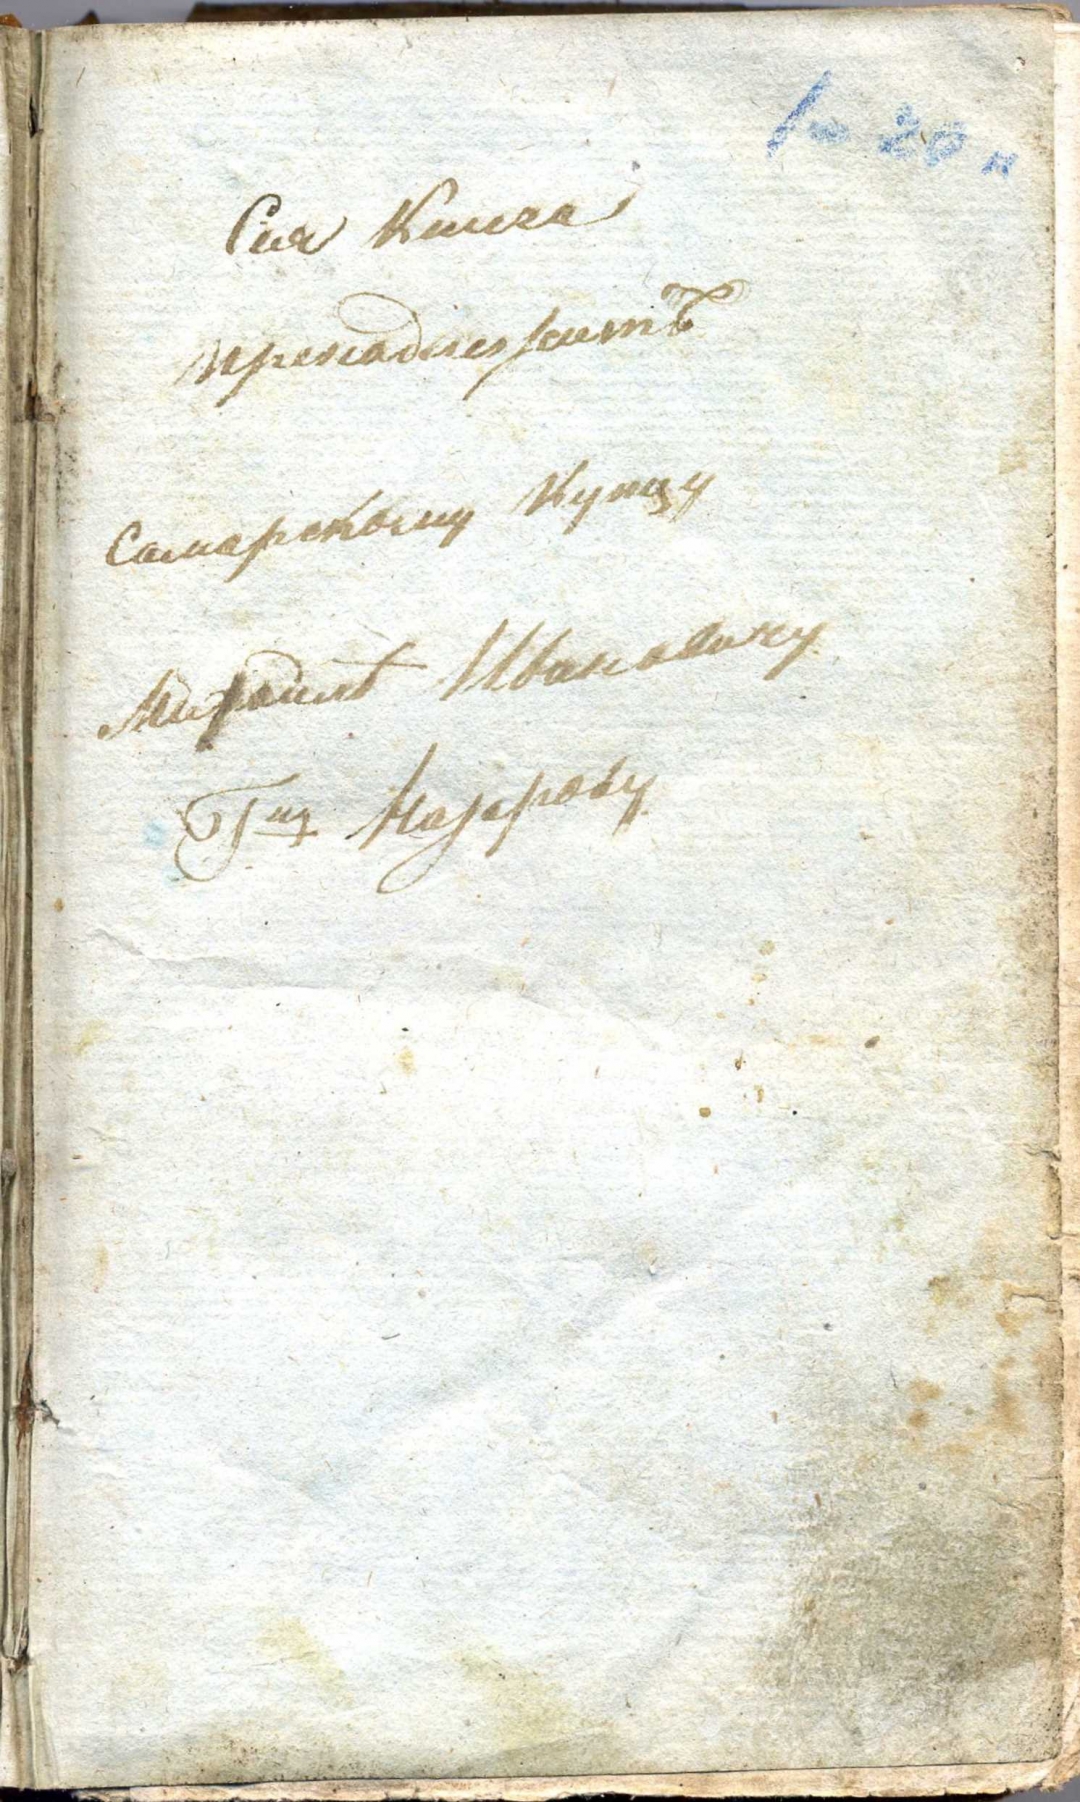 1р 20 к
Сия Книга
пренадлежитъ
Самарскому Купцу
Михаилѣ Ивановичу
Гну Назарову